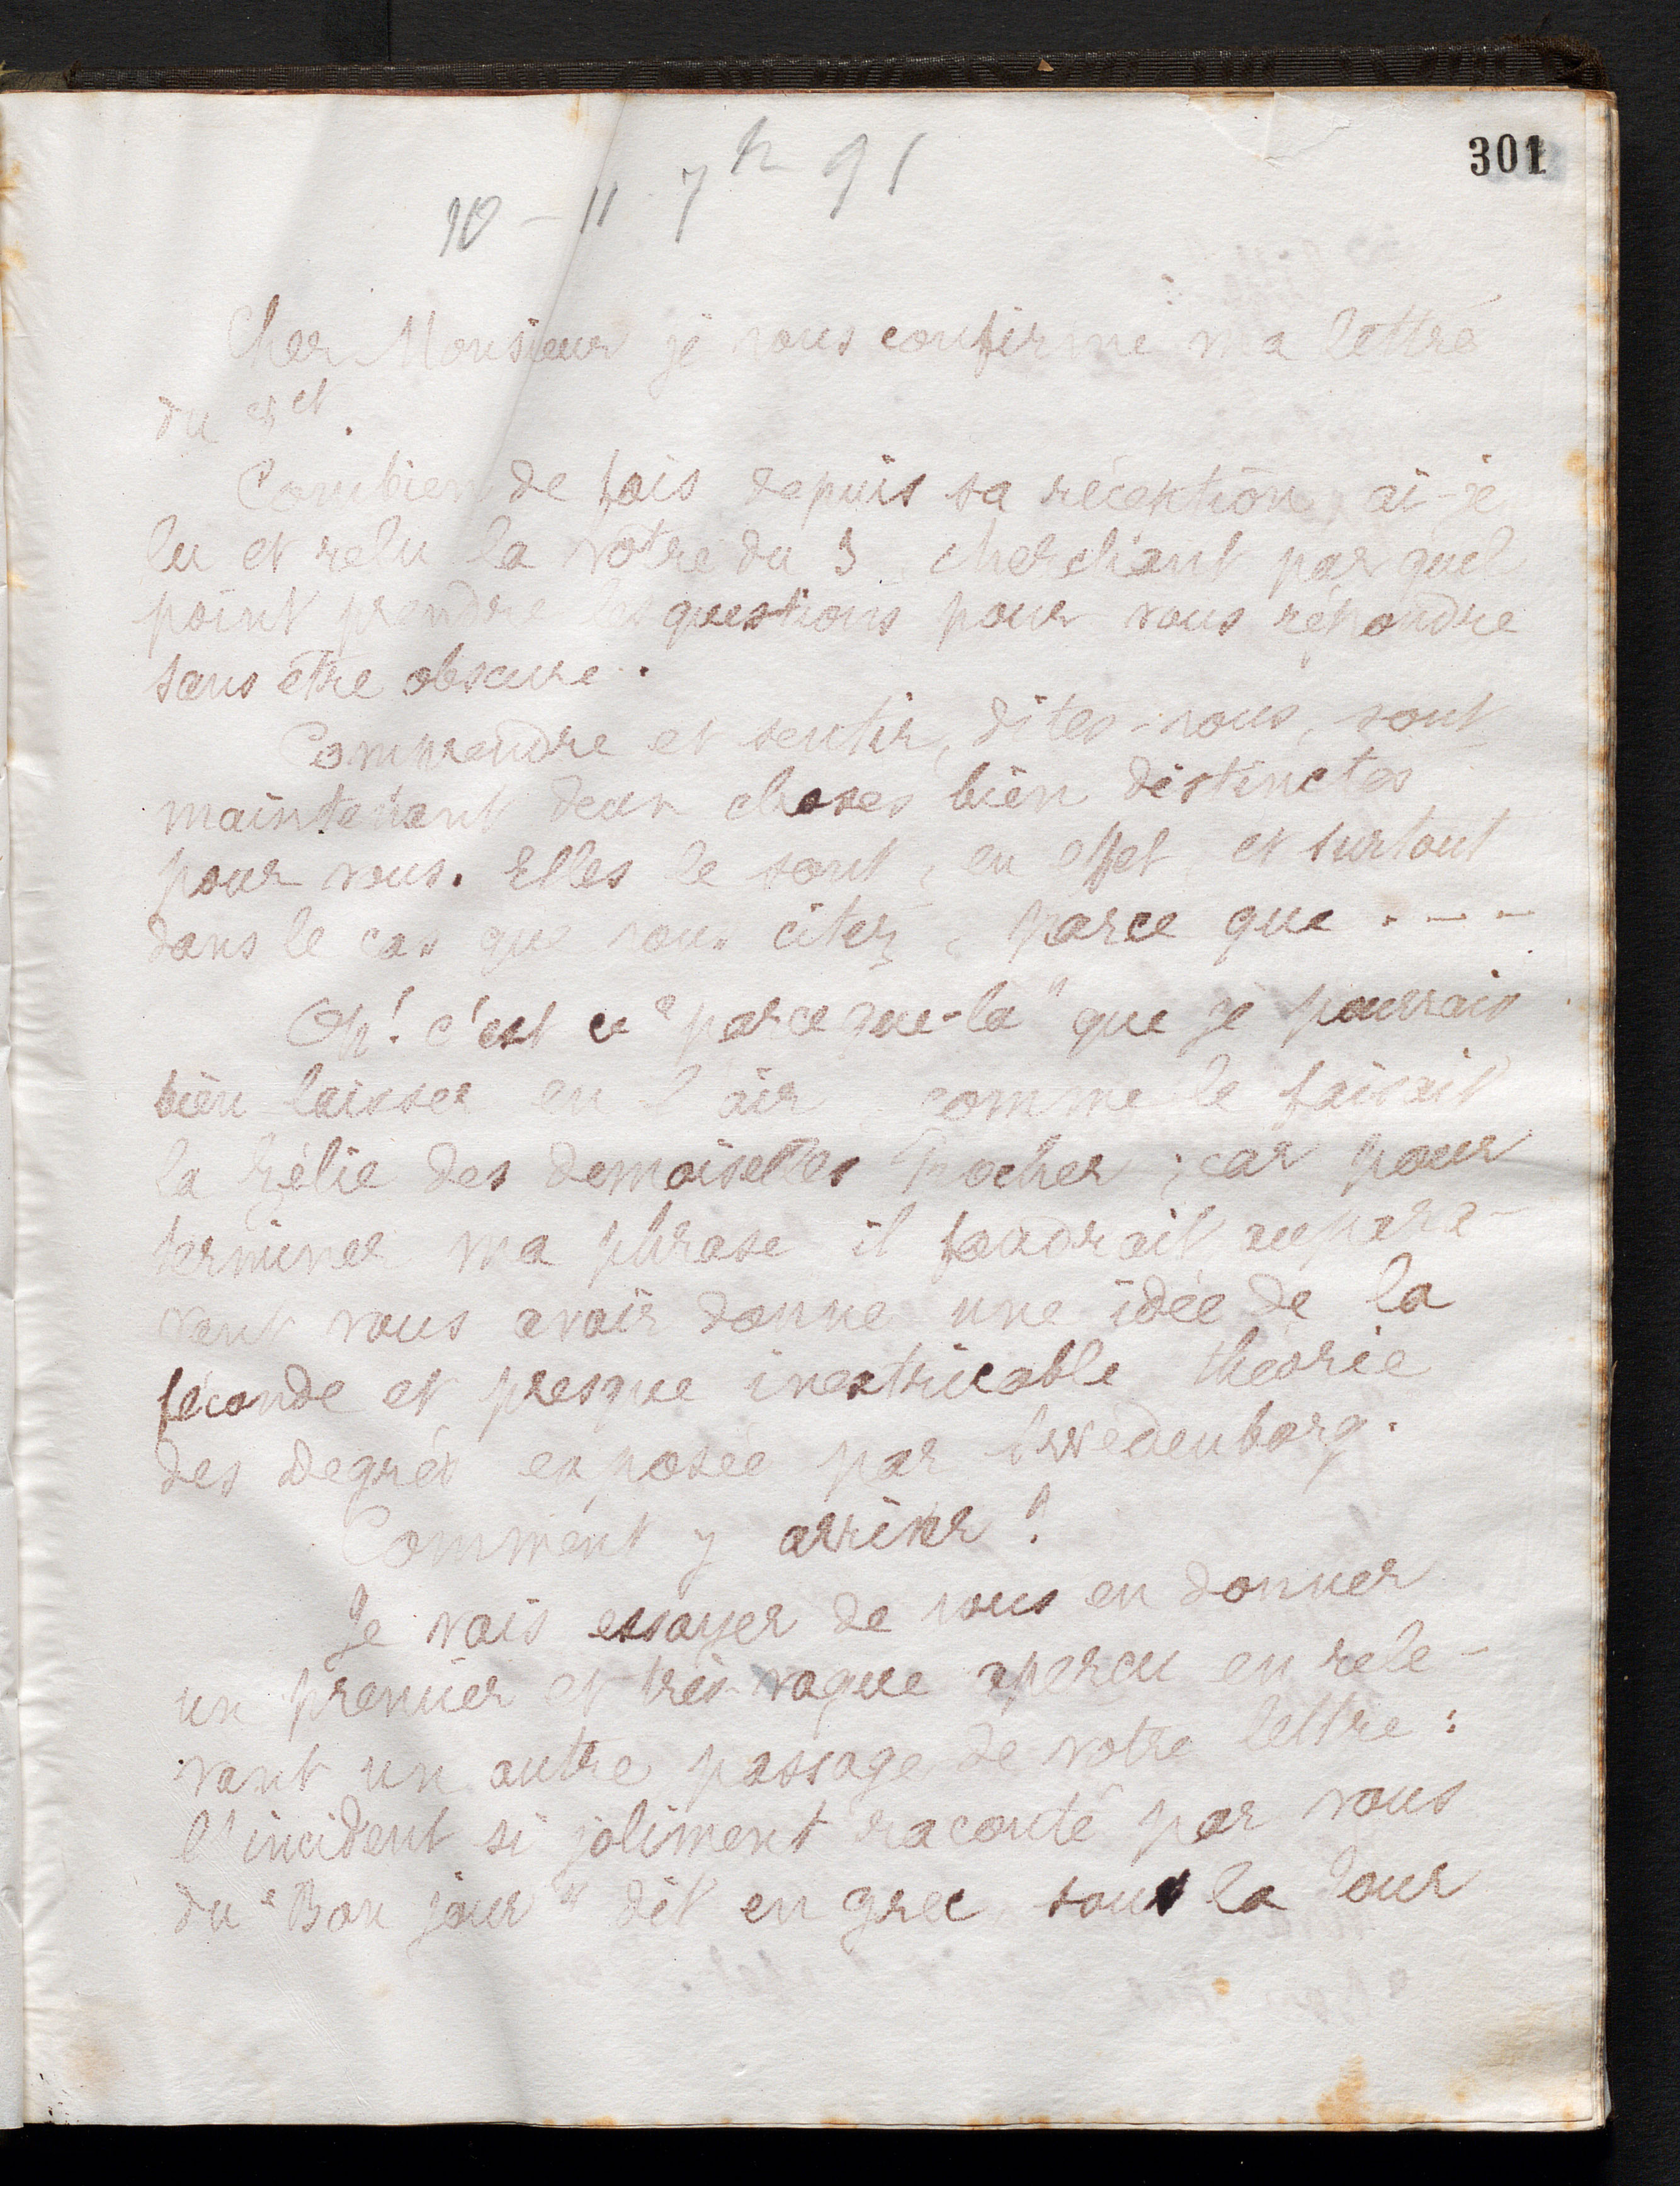 301
10 - 11 7re 91
Cher Monsieur je vous confirme ma lettre
du et.
Combien de fois depuis sa réception, ai-je
lu et relu la votre du 3 cherchant par quel
point prendre les questions pour vous répondre
sans être obscure.
Comprendre et sentir, dites-vous, sont
maintenant deux choses bien distinctes
pour vous. Elles le sont, en effet et surtout
dans le cas que vous citez, parce que . - -
Oh! c'est ce "parce que-là" que je pourrais
bien laisser en l'air comme le faisait
la Zélie des demoiselles Pocher ; car pour
terminer ma phrase il faudrait aupara-
vant vous avoir donné une idée de la
féconde et presque inextricable théorie
des Degrés exposée par Swedenborg.
Comment y arriver ?
Je vais essayer de vous en donner
un premier et très-vague aperçu en rele-
vant un autre passage de votre lettre :
l'incident si joliment raconté par vous
du "Bon jour" dit en grec sous la Tour